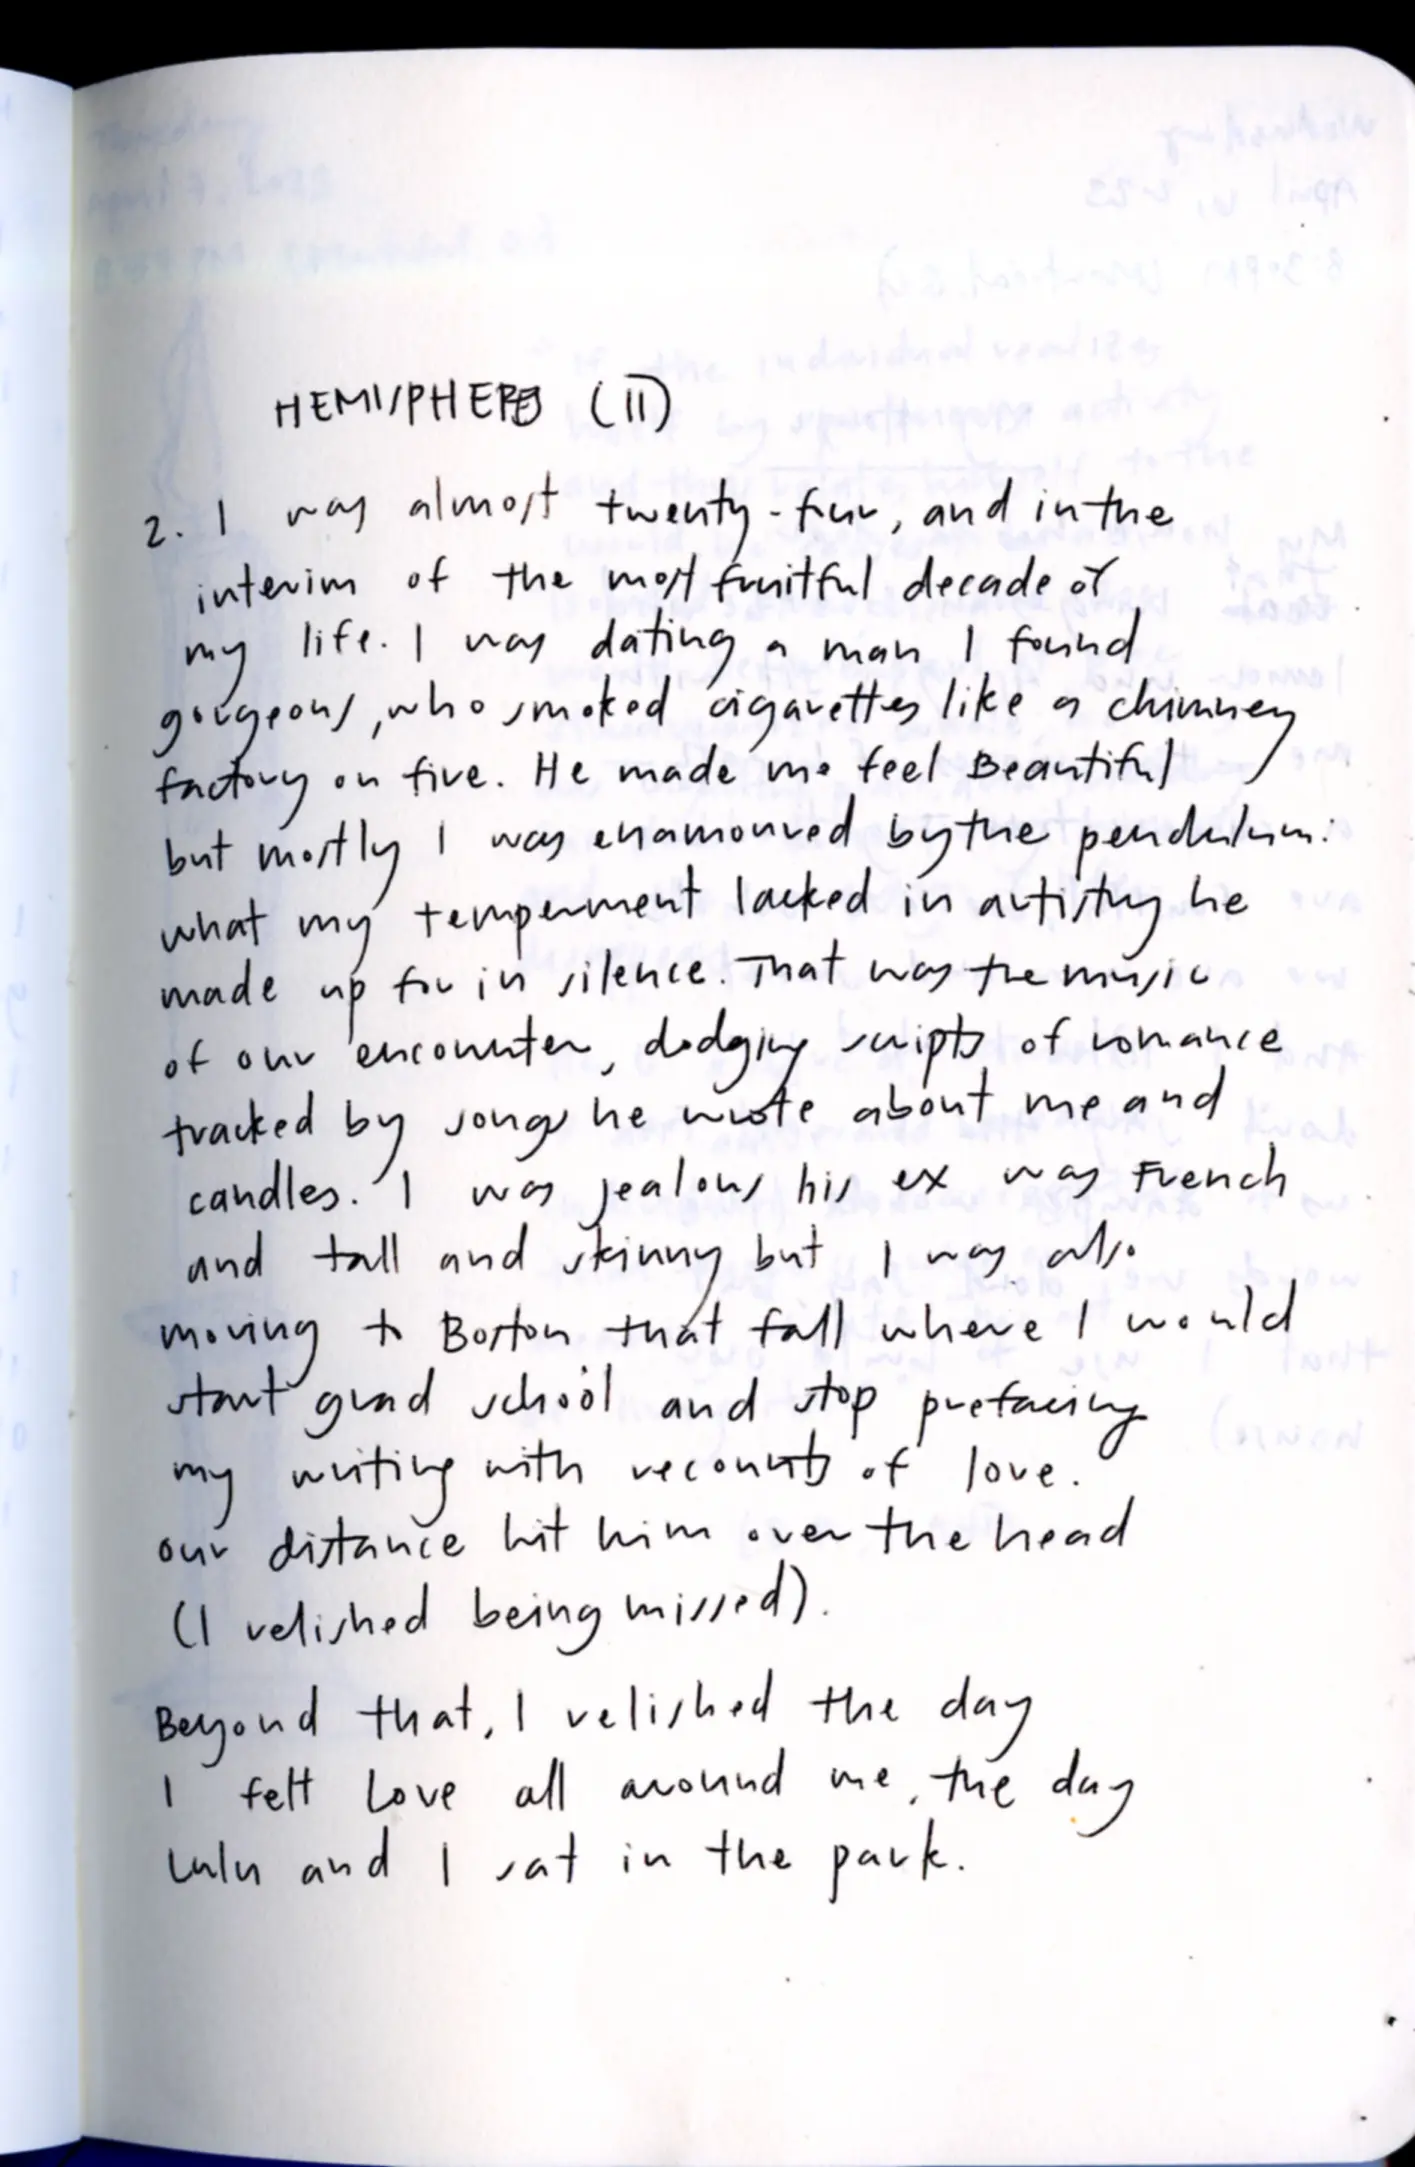 HEMISPHERE (II)
2. I was almost twenty-four, and in the
interim of the most fruitful decade of
my life. I was dating a man I found
gorgeous, who smoked cigarettes like a chimney
factory on five. He made me feel Beautiful
but mostly I was enamoured by the pendulum:
what my temperment lacked in artistry he
made up for in silence. That was the music
of our encounter, dodging scripts of romance
tracked by songs he wrote about me and
candles. I was jealous his ex was French
and tall and skinny but I was also
moving to Boston that fall where I would
start grad school and stop prefacing
my writing with recounts of love.
our distance hit him over the head
(I relished being missed).
Beyond that, I relished the day
I felt Love all around me, the day
Lulu and I sat in the park.